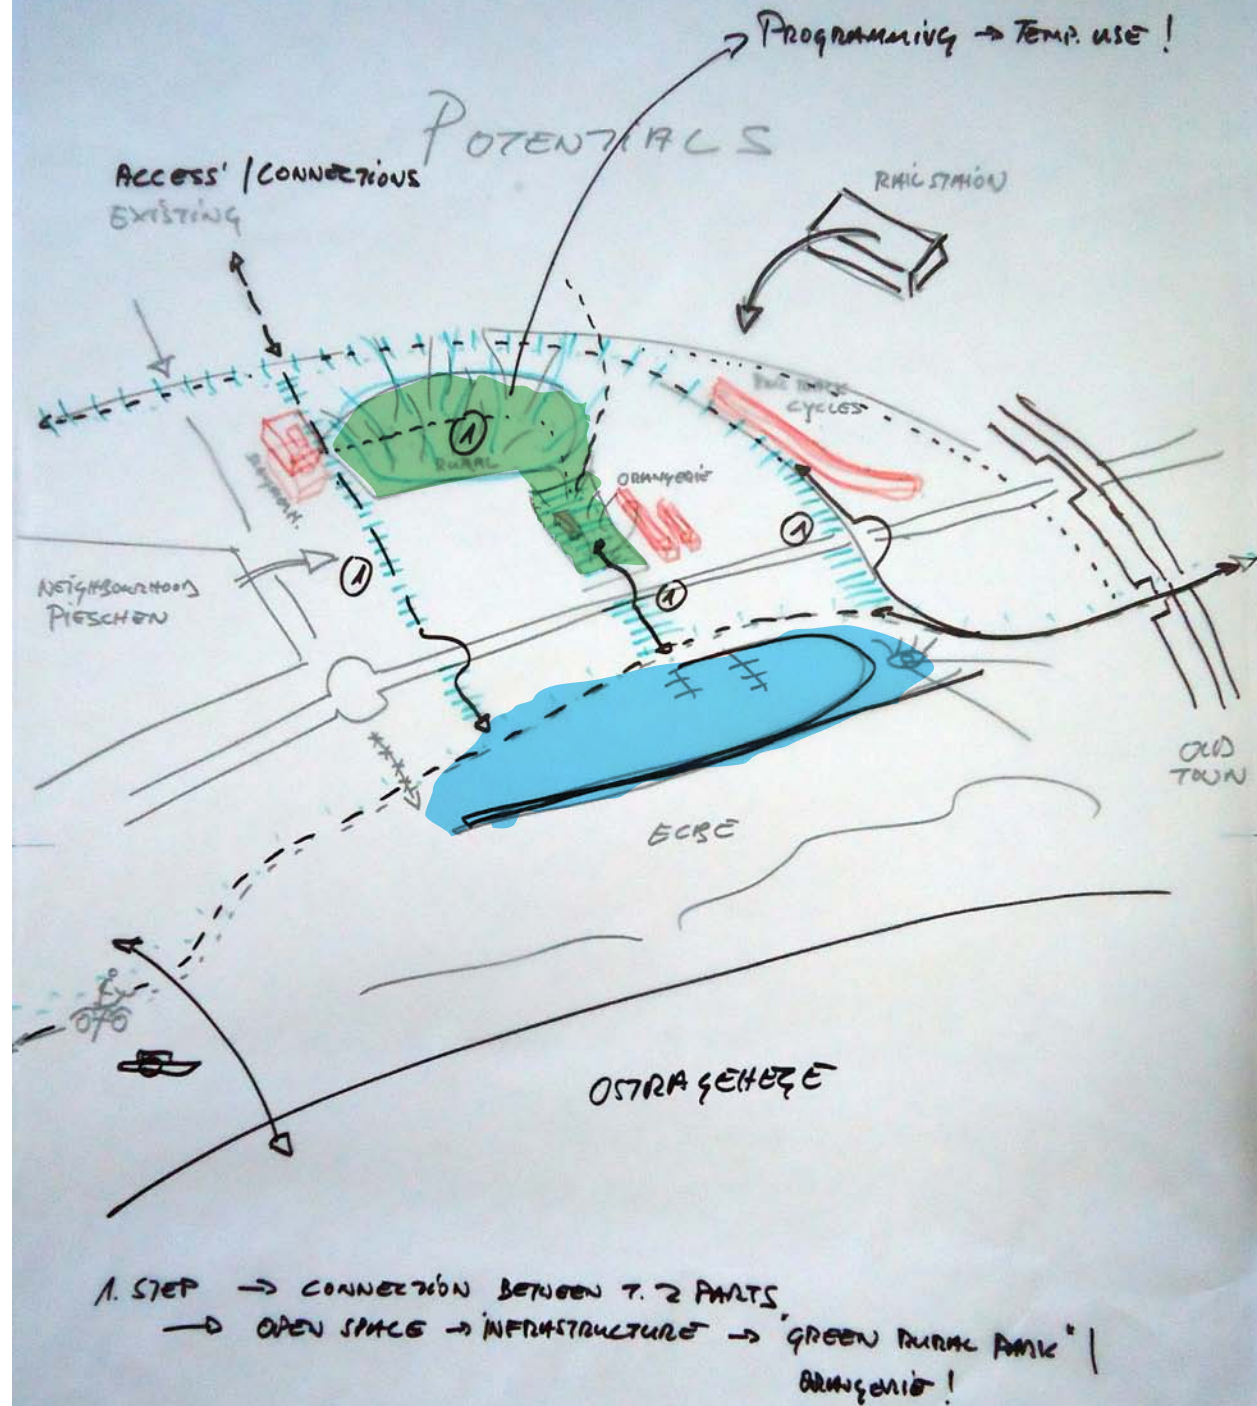 PROGRAMMING → TEMP. USE !
POTENTIALS
ACCESS' / CONNECTIONS
EXISTING
RAILSTAION
CYCLES
1
RURAL
ORANGERIE
1
1
1
NEIGHBOURHOOD
PIESCHEN
OLD
TOWN
ELBE
OSTRAGEHEGE
1. STEP → CONNECTION BETWEEN T. 2 PARTS
→ OPEN SPACE → INFRASTRUCTURE → "GREEN RURAL PARK" /
ORANGERIE !